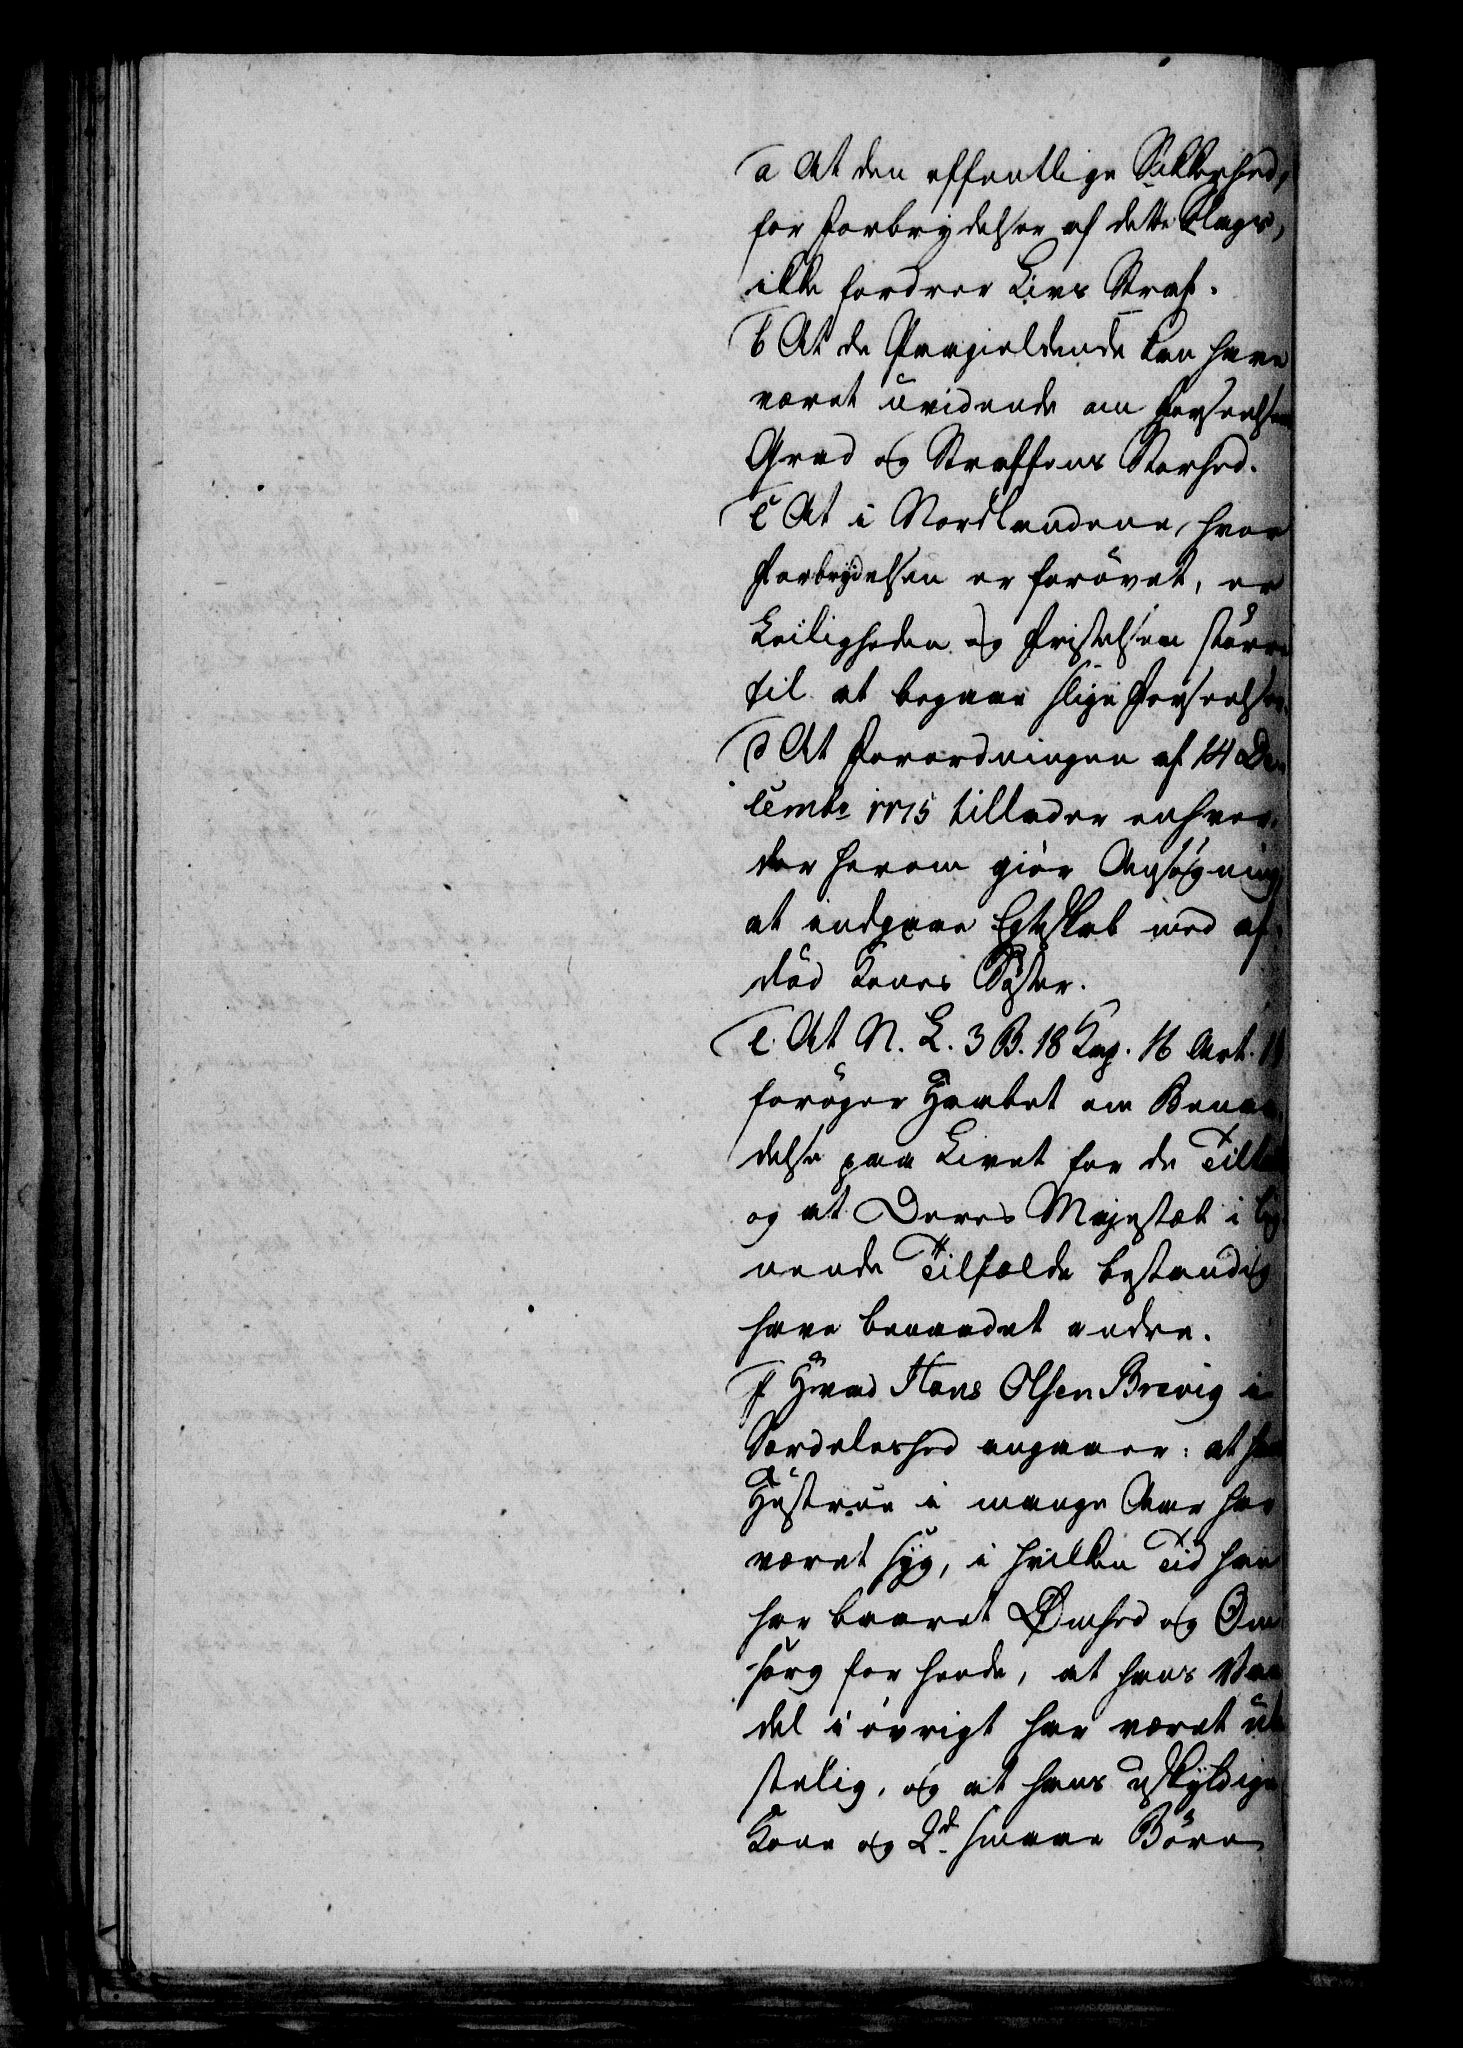 a At den offentlige Sikkerhed,
for Forbrydelser af dette Slags,
ikke fordrer Livs Straf.
b At de Paagieldende kan have
været uvidende om Forseelsens
Grad og Straffens Storhed.
c At i Nordlandene, hvor
Forbrydelsen er forövet, er
Leiligheden og Fristelsen större
til at begaae slige Forseelser.
d At Forordningen af 14 De-
cembr 1775 tillader enhver,
der herom giör Ansögning,
at indgaae Egteskab med af-
död Kones Söster.
e. At N. L. 3 B. 18 Kap. 16 Art.
forøger Haabet om Benaa-
delse paa Livet for de Tiltalte
og at Deres Majestæt i lig-
nende Tilfælde bestandig
have benaadet andre.
f Hvad Hans Olsen Brevig i
Særdeleshed angaaer: at hans
Hustrue i mange Aar har
været syg, i hvilken Tid han
har baaret Ømhed og Om-
sorg for hende, at hans Van-
del i övrigt har været
stelig, og at hans uskyldige
Kone og 2de smaae Børn